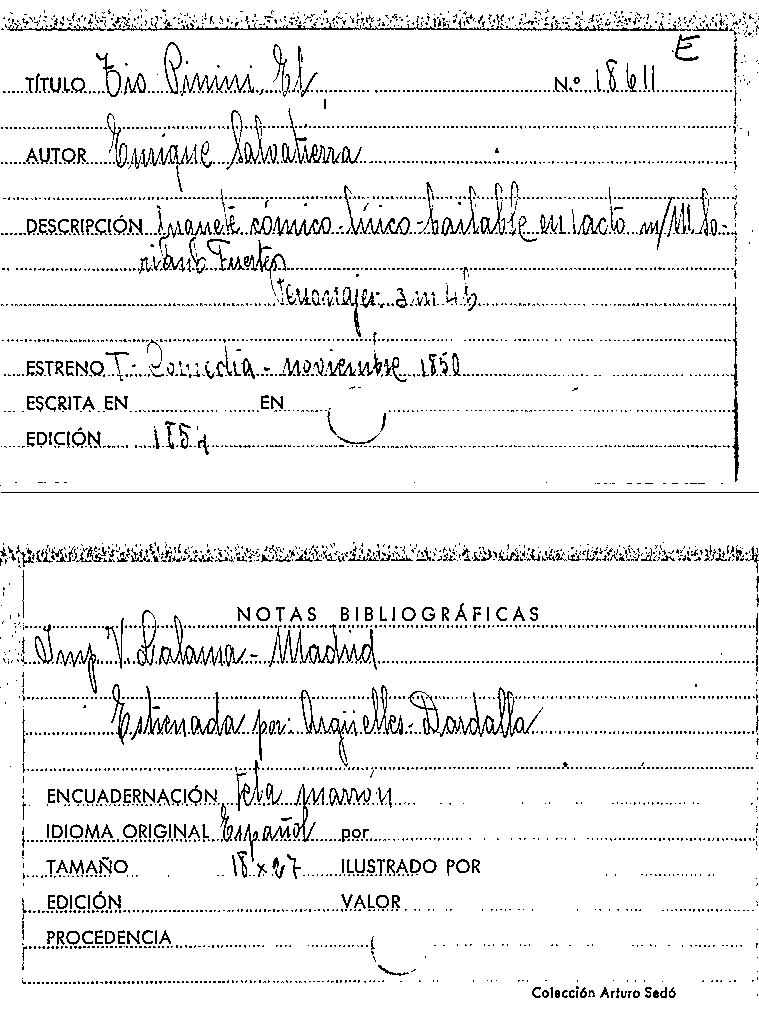 E
TÍTULO Tio Pinini, El N.º 18611
AUTOR Enrique Salvatierra
DESCRIPCIÓN Juguete cómico-lírico-bailable en 1 acto m/ M. So-
riano Fuertes
Personajes 3 m 4 h
ESTRENO T. Comedia - noviembre 1850
ESCRITA EN EN
EDICIÓN
NOTAS BIBLIOGRÁFICAS
Imp V. Lalama - Madrid
Estrenada por: Argüelles-Dardalla
ENCUADERNACIÓN Tela marrón
IDIOMA ORIGINAL Español por
TAMAÑO 18 x 27 ILUSTRADO POR
EDICIÓN VALOR
PROCEDENCIA
Colección Arturo Sedó